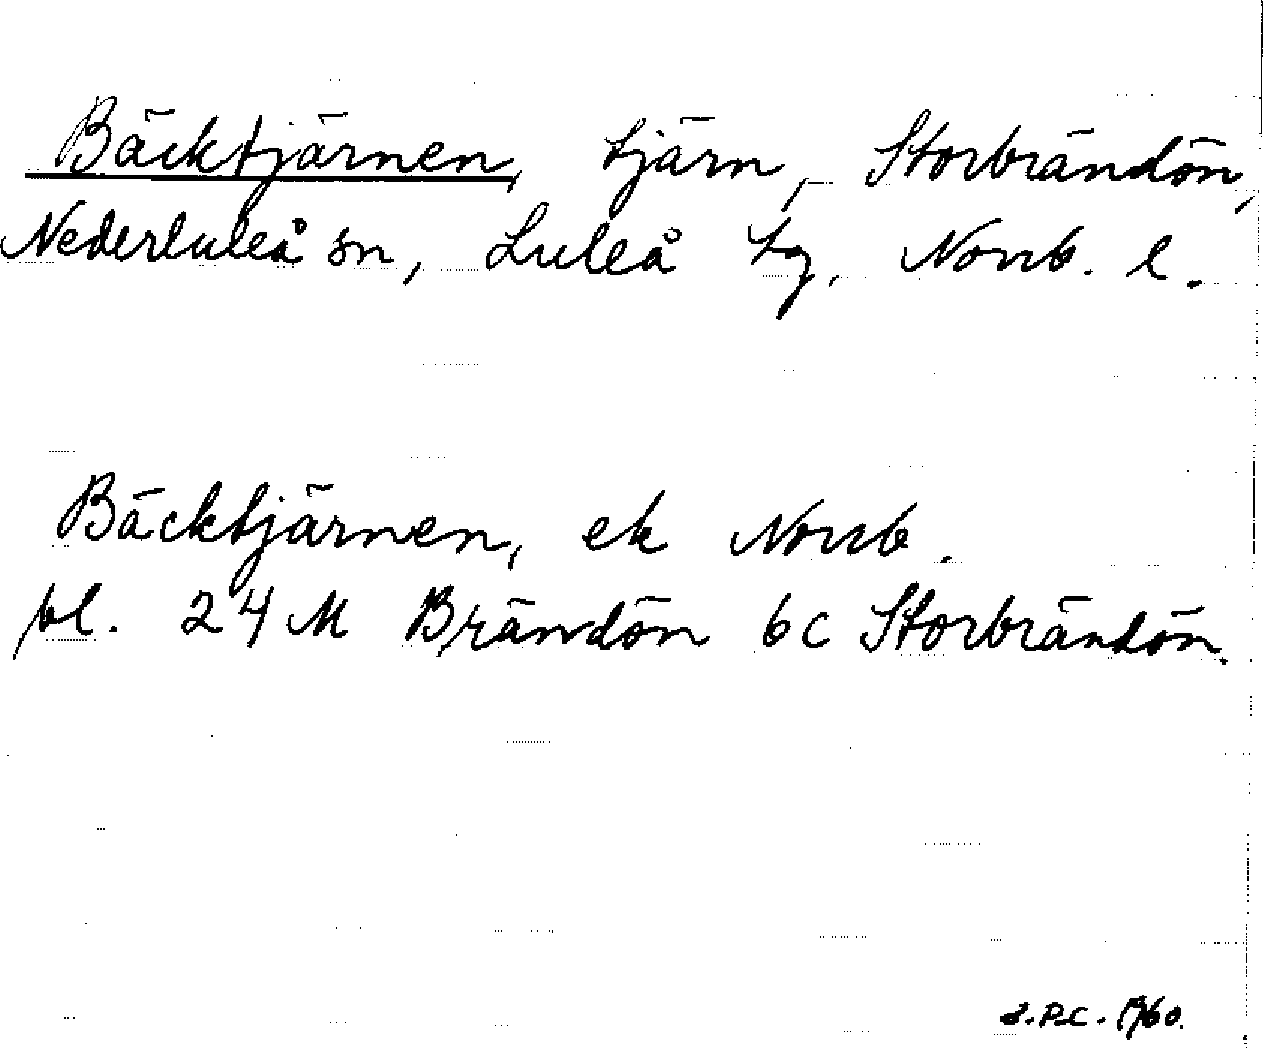 Bäcktjärnen, tjärn, Storbrändön,
Nederluleå sn, Luleå tg, Norrb. l.
Bäcktjärnen, ek Norrb.
bl. 24 M Brändön 6c Storbrändön.
1960.